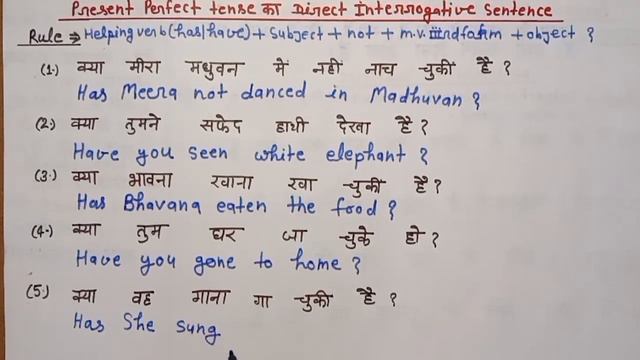 Present Perfect tense का Direct Interrogative Sentence
Rule ⇒ Helping verb (has/have) + Subject + not + m.v. IIIrd form + object ?
(1.) क्या मीरा मधुवन में नहीं नाच चुकी है ?
Has Meera not danced in Madhuvan ?
(2.) क्या तुमने सफेद हाथी देखा है ?
Have you seen white elephant ?
(3.) क्या भावना खाना खा चुकी है ?
Has Bhavana eaten the food ?
(4.) क्या तुम घर जा चुके हो ?
Have you gone to home ?
(5.) क्या वह गाना गा चुकी है ?
Has She sung